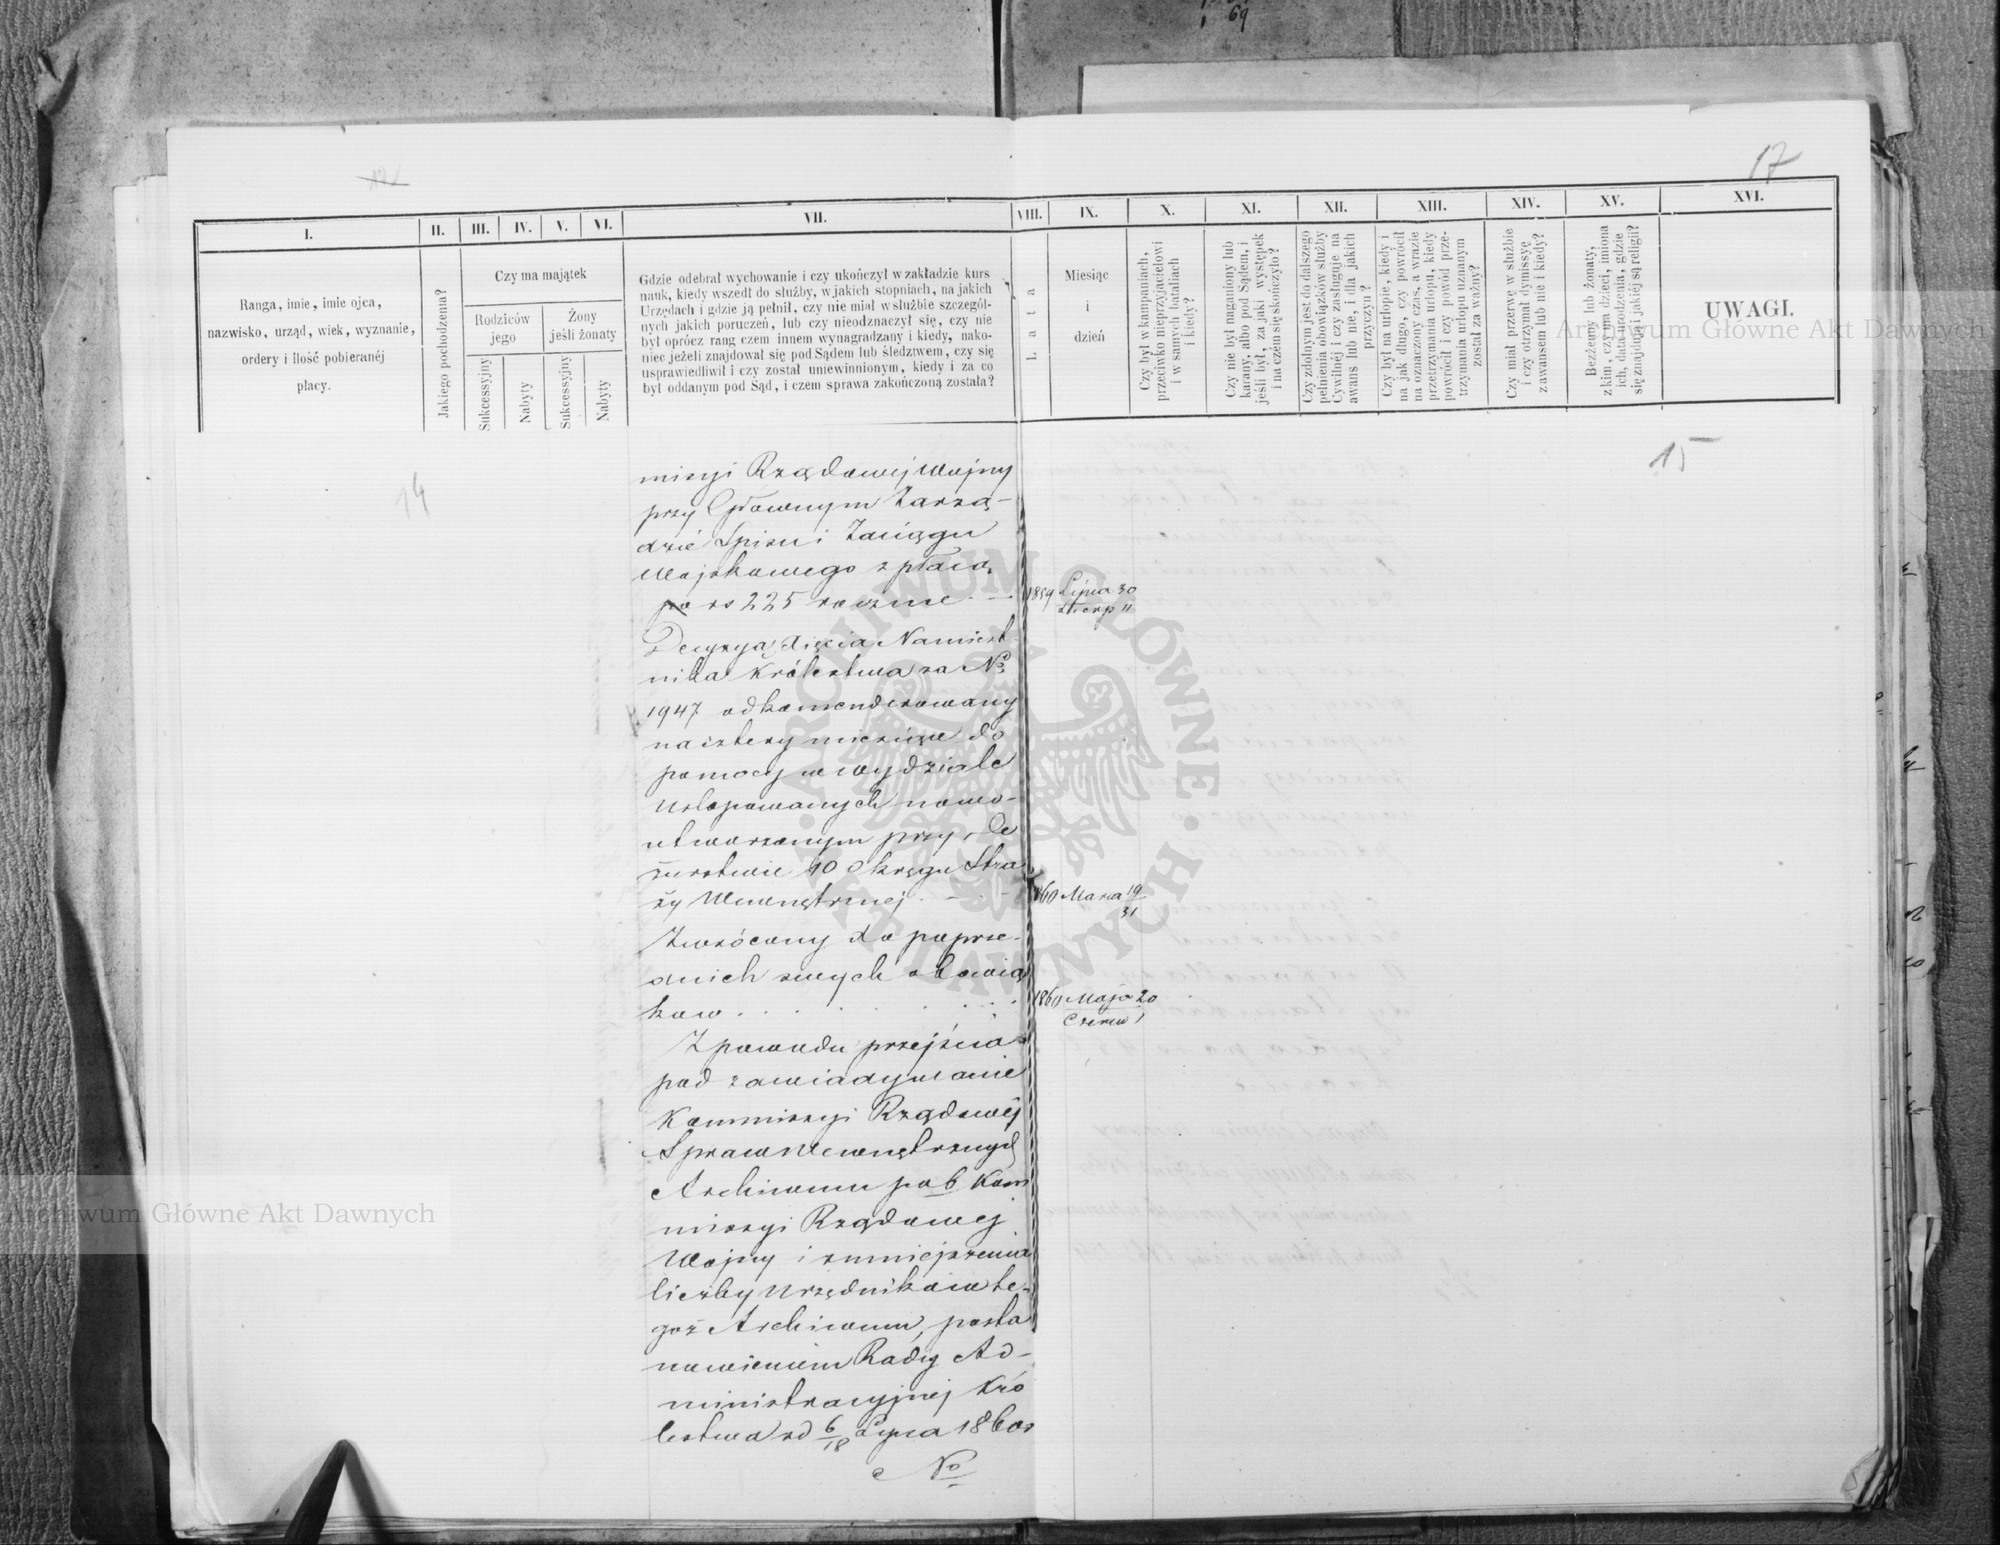 69
17
I.
II.
III.
IV.
V.
VI.
VII.
VIII.
IX.
X.
XI.
XII.
XIII.
XIV.
XV.
XVI.
Ranga, imie, imie ojca,
nazwisko, urząd, wiek, wyznanie,
ordery i ilość pobieranéj
płacy.
Jakiego pochodzenia?
Czy ma majątek
Rodziców
jego
Żony
jeśli żonaty
Sukcessyjny
Nabyty
Sukcessyjny
Nabyty
Gdzie odebrał wychowanie i czy ukończył w zakładzie kurs
nauk, kiedy wszedł do służby, w jakich stopniach, na jakich
Urzędach i gdzie ją pełnił, czy nie miał w służbie szczegól-
nych jakich poruczeń, lub czy nieodznaczył się, czy nie
był oprócz rang czem innem wynagradzany i kiedy, nako-
niec jeżeli znajdował się pod Sądem lub śledztwem, czy się
usprawiedliwił i czy został uniewinnionym, kiedy i za co
był oddanym pod Sąd, i czem sprawa zakończoną została?
Lata
Miesiąc
i
dzień
Czy był w kampaniach,
przeciwko nieprzyjacielowi
i w samych bataliach
i kiedy?
Czy nie był naganiony lub
karany, albo pod Sądem, i
jeśli był, za jaki występek
i na czem się skończyło?
Czy zdolnym jest do dalszego
pełnienia obowiązków służby
Cywilnéj i czy zasługuje na
awans lub nie, i dla jakich
przyczyn?
Czy był na urlopie, kiedy i
na jak długo, czy powrócił
na oznaczony czas, a w razie
przetrzymania urlopu, kiedy
powrócił i czy powód prze-
trzymania urlopu uznanym
został za ważny?
Czy miał przerwę w służbie
i czy otrzymał dymissyę
z awansem lub nie i kiedy?
Bezżenny lub żonaty,
z kim, czy ma dzieci, imiona
ich, data urodzenia, gdzie
się znajdują i jakiéj są religii?
UWAGI.
14
15
missyi Rządowej Wojny
przy Głównym Zarzą-
dzie Spisu i Zaciągu
Wojskowego z płacą
po rs 225 rocznie
1859 Lipca 30
Sierp 11
Decyzyą Xięcia Namiest
nika Królestwa za No
1947 odkomenderowany
na cztery miesiące do
pomocy w wydziale
Urlopowanych nowo-
utworzonym przy De
żurstwie 10 Okręgu Stra
ży Wewnętrznej
860 Marca 19/31
Zwrócony do poprze-
dnich swych obowiąz
ków
1860 Maja 20
Czerw 1
Z powodu przejścia
pod zawiadywanie
Kommissyi Rządowéj
Spraw Wewnętrznych
Archiwum po b Kom
missyi Rządowej
Wojny i zmniejszenia
liczby urzędników te-
goż Archiwum, posta
nowieniem Rady Ad-
ministracyjnej Kró
lestwa od 6/18 Lipca 1860 r
No
Archiwum Główne Akt Dawnych
Archiwum Główne Akt Dawnych
ARCHIWUM GŁÓWNE AKT DAWNYCH